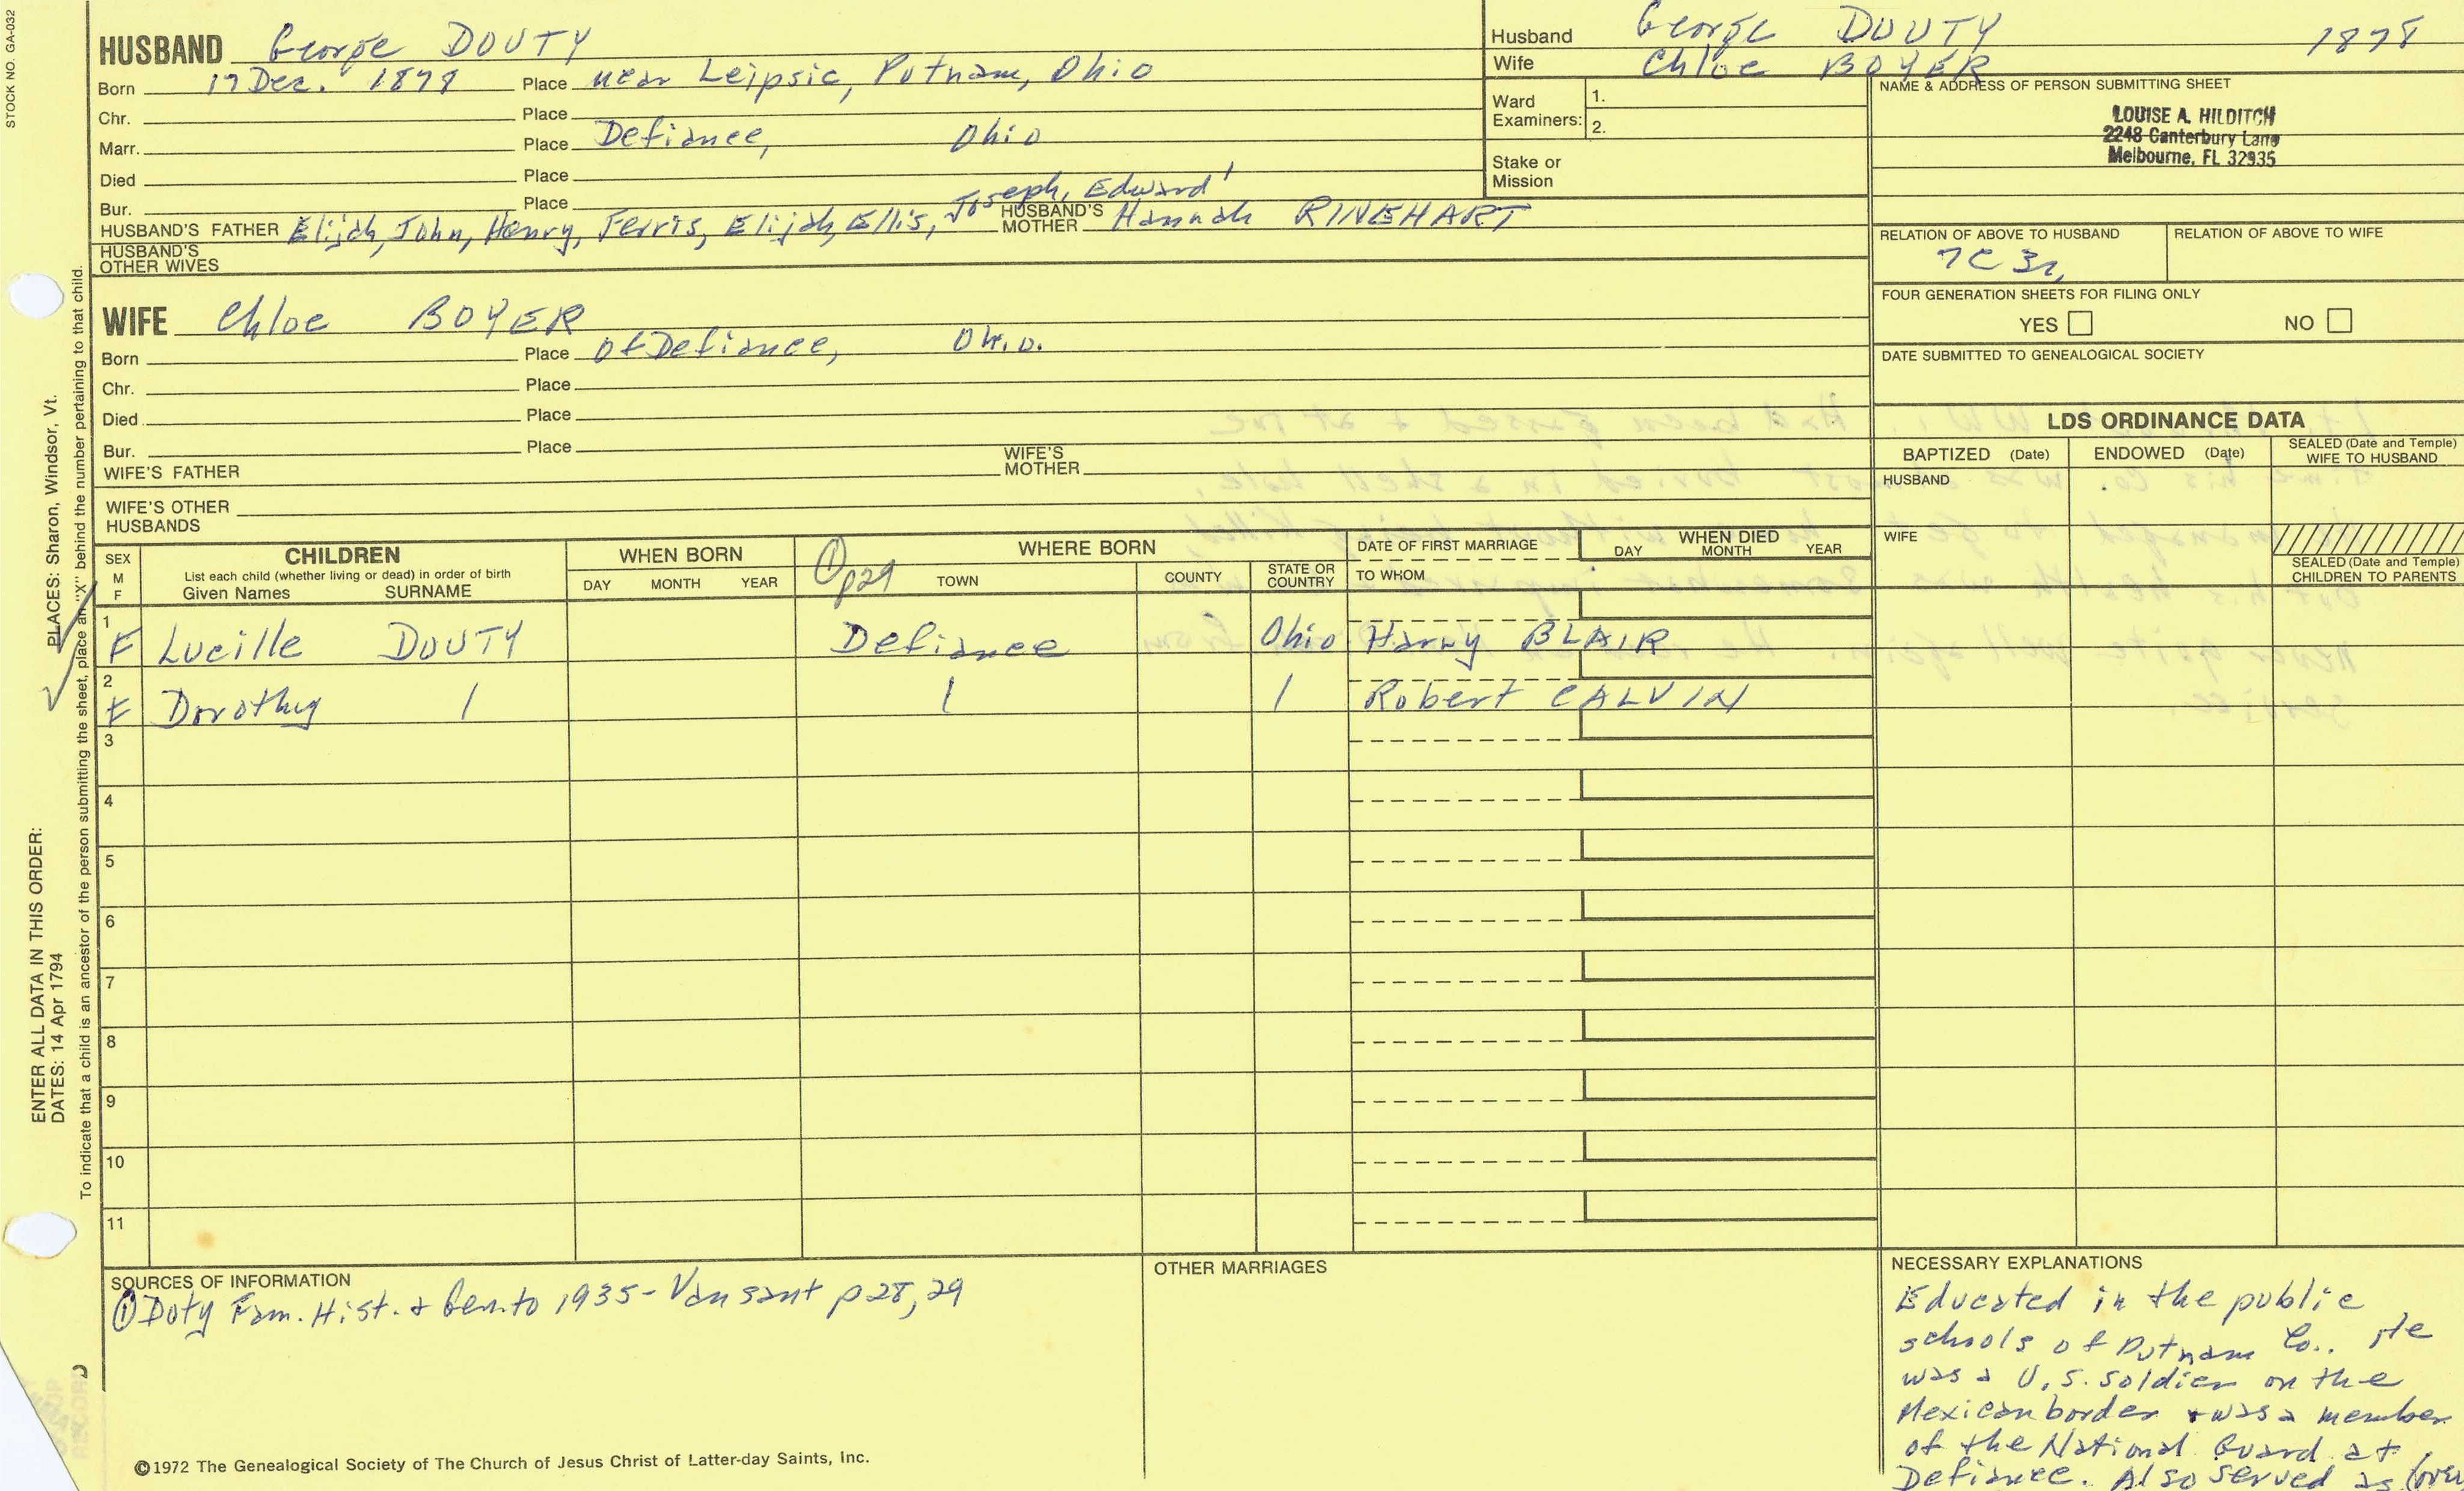 STOCK NO. GA-032
HUSBAND George DOUTY
Born 17 Dec. 1878 Place near Leipsic, Putnam, Ohio
Chr. Place
Marr. Place Defiance, Ohio
Died Place
Bur. Place
HUSBAND'S FATHER Elijah, John, Henry, Ferris, Elijah, Ellis, Joseph, Edward' HUSBAND'S MOTHER Hannah RINEHART
HUSBAND'S OTHER WIVES
WIFE Chloe BOYER
Born Place Of Defiance, Ohio.
Chr. Place
Died Place
Bur. Place
WIFE'S FATHER WIFE'S MOTHER
WIFE'S OTHER HUSBANDS
Husband George DOUTY 1878
Wife Chloe BOYER
Ward Examiners: 1.
2.
Stake or Mission
NAME & ADDRESS OF PERSON SUBMITTING SHEET
LOUISE A. HILDITCH
2248 Canterbury Lane
Melbourne, FL 32935
RELATION OF ABOVE TO HUSBAND RELATION OF ABOVE TO WIFE
7C 3r,
FOUR GENERATION SHEETS FOR FILING ONLY
YES NO
DATE SUBMITTED TO GENEALOGICAL SOCIETY
LDS ORDINANCE DATA
BAPTIZED (Date) ENDOWED (Date) SEALED (Date and Temple) WIFE TO HUSBAND
HUSBAND
WIFE
SEALED (Date and Temple) CHILDREN TO PARENTS
SEX M F CHILDREN List each child (whether living or dead) in order of birth Given Names SURNAME
WHEN BORN DAY MONTH YEAR
① p29 WHERE BORN TOWN COUNTY STATE OR COUNTRY
DATE OF FIRST MARRIAGE TO WHOM
WHEN DIED DAY MONTH YEAR
1 F Lucille DOUTY Defiance Ohio Harry BLAIR
2 F Dorothy / / / Robert CALVIN
3
4
5
6
7
8
9
10
11
SOURCES OF INFORMATION
① Doty Fam. Hist. & Gen. to 1935 - Van sant p 28, 29
OTHER MARRIAGES
NECESSARY EXPLANATIONS
Educated in the public
schools of Putnam Co.. He
was a U.S. soldier on the
Mexican border & was a member
of the National Guard at
Defiance. Also served as (over
©1972 The Genealogical Society of The Church of Jesus Christ of Latter-day Saints, Inc.
ENTER ALL DATA IN THIS ORDER:
DATES: 14 Apr 1794 PLACES: Sharon, Windsor, Vt.
To indicate that a child is an ancestor of the person submitting the sheet, place an "X" behind the number pertaining to that child.